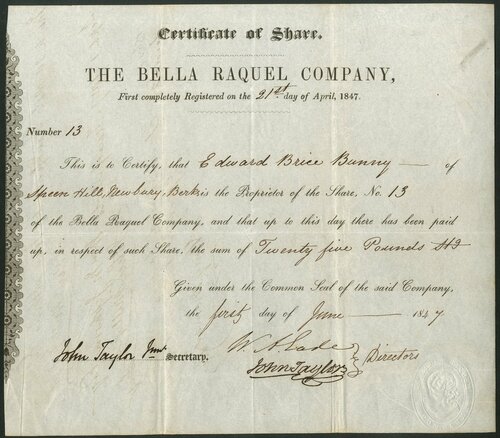 Certificate of Share.
THE BELLA RAQUEL COMPANY,
First completely Registered on the 21st day of April, 1847.
Number 13
This is to Certify, that Edward Brice Bunny of
Speen Hill, Newbury, Berks is the Proprietor of the Share, No. 13
of the Bella Raquel Company, and that up to this day there has been paid
up, in respect of such Share, the sum of Twenty five Pounds
Given under the Common Seal of the said Company,
the first day of June 1847
John Taylor Junr Secretary.
W. A.
John Taylor
Directors